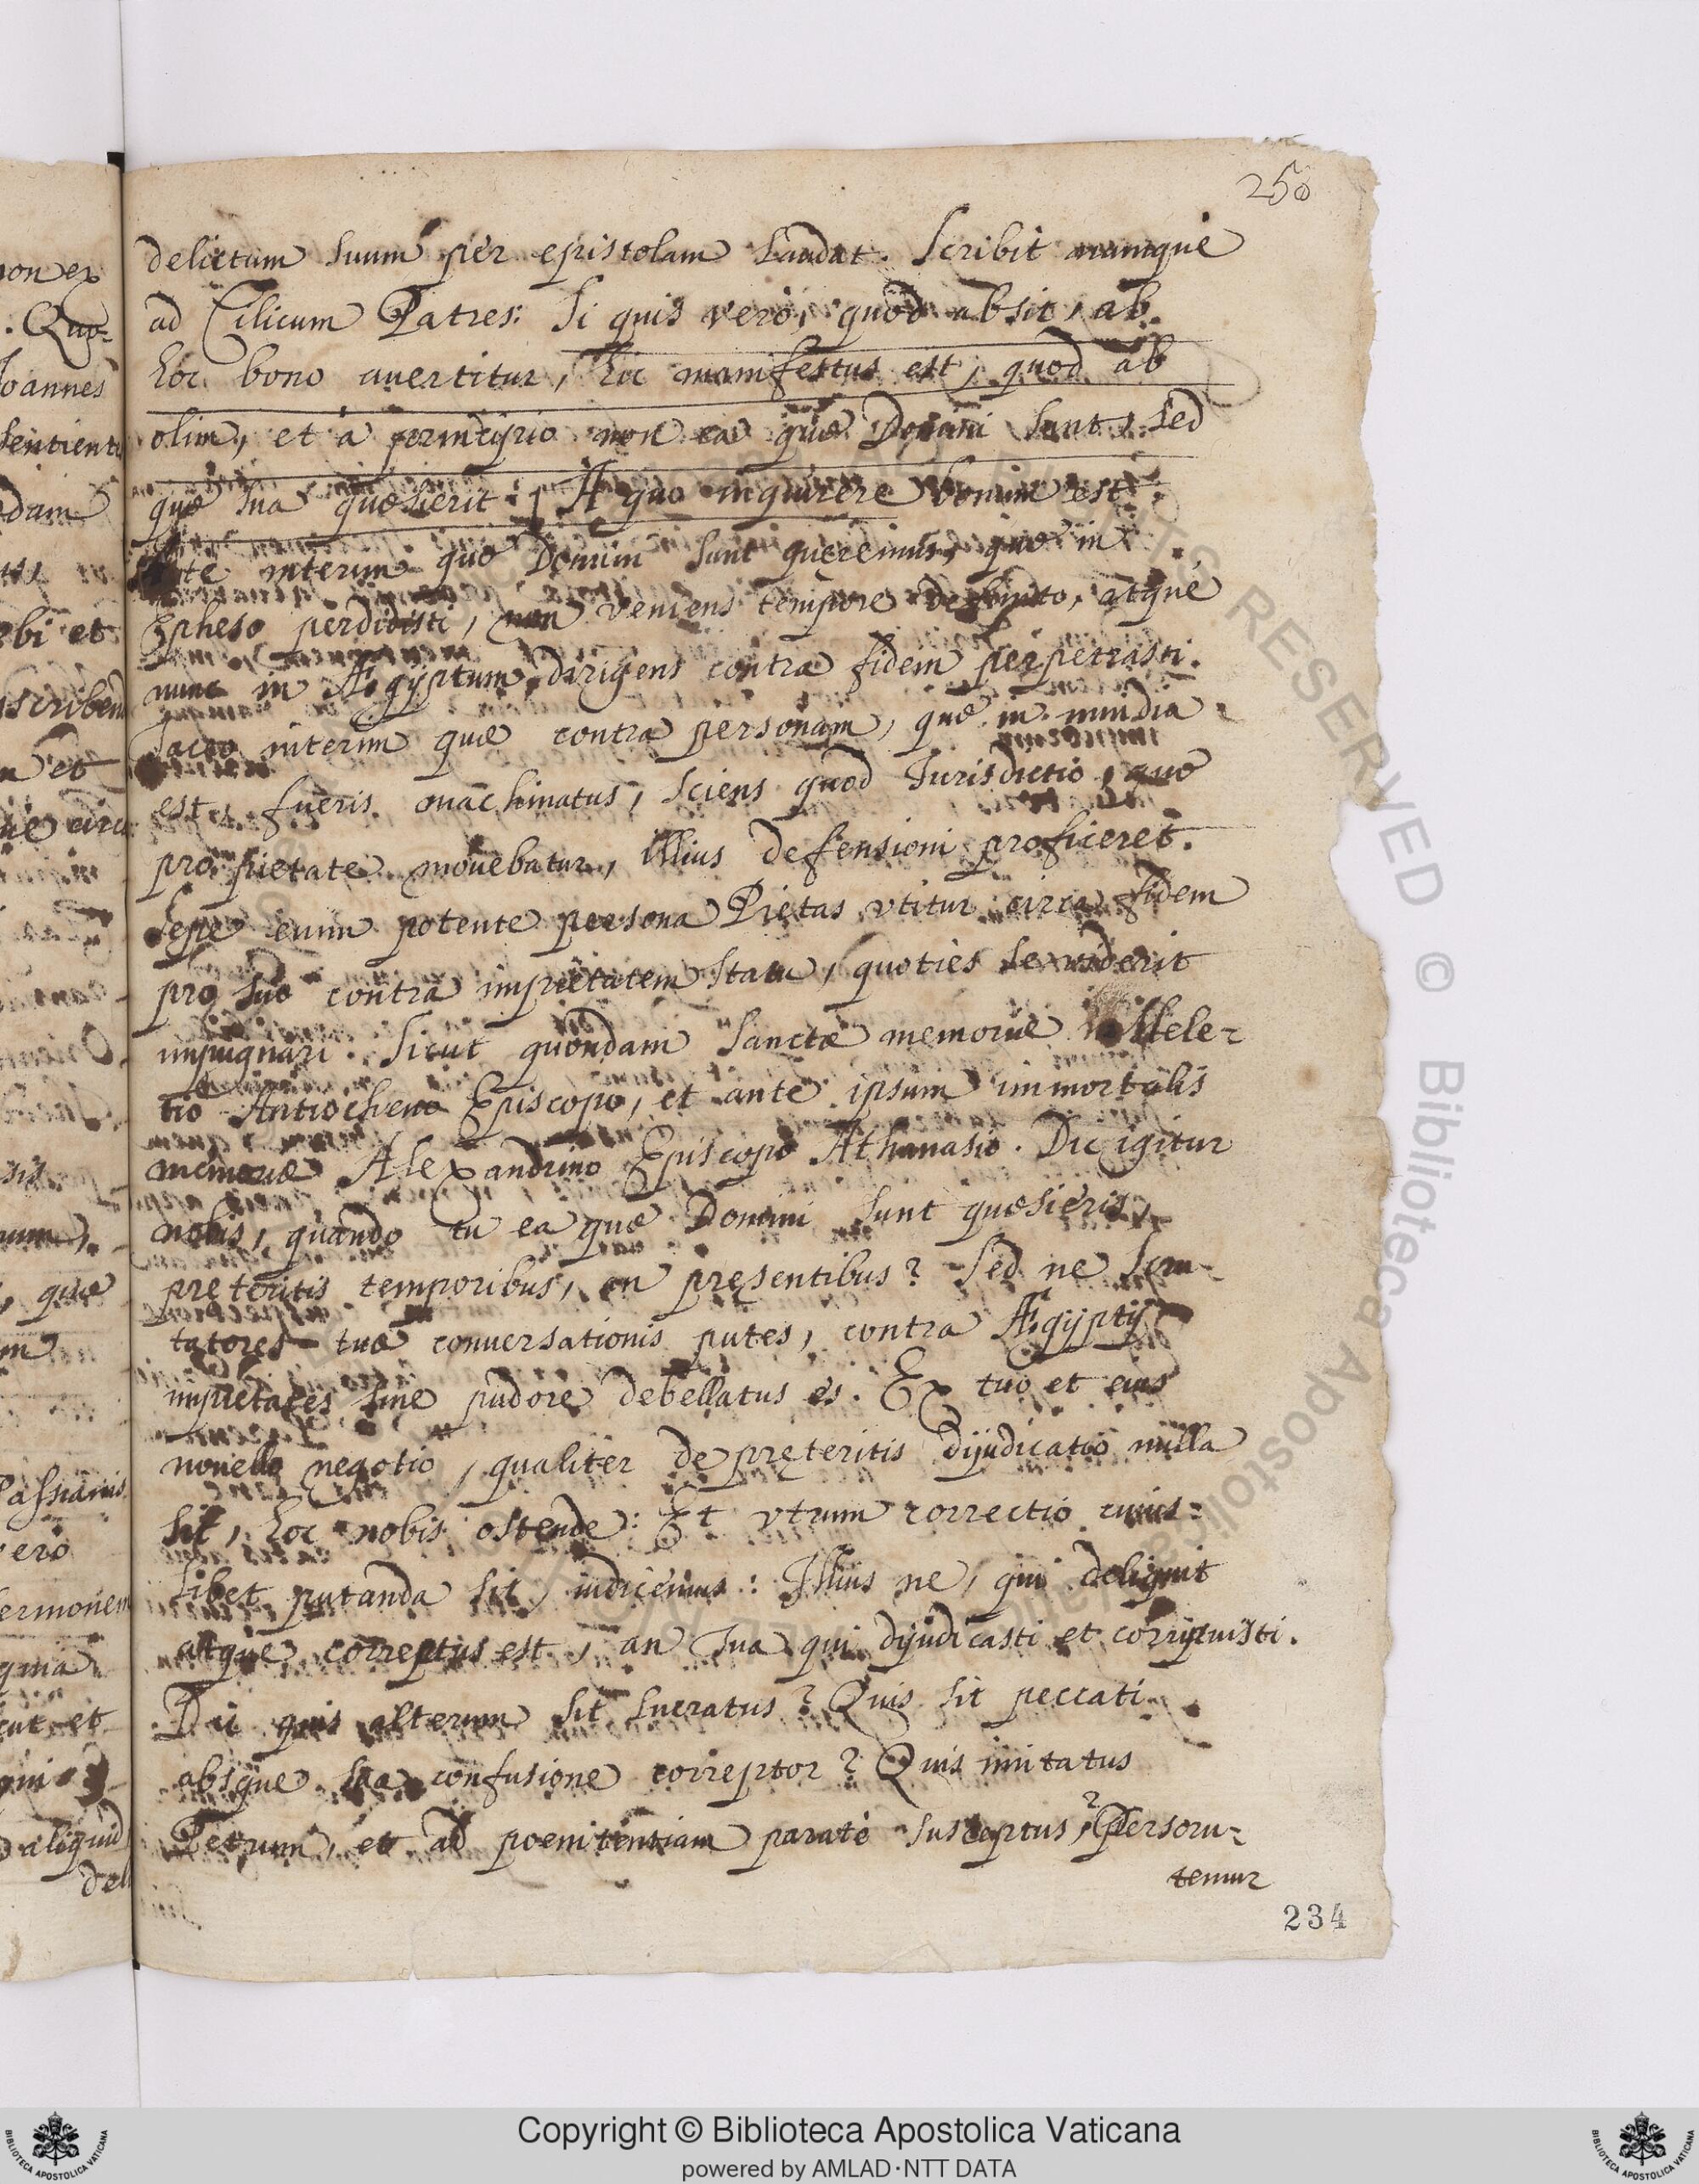 250
delictum suum per epistolam laudat. Scribit namque
ad Cilicum Patres: Si quis vero, quod absit, ab
hoc bono auertitur, hic manifestus est, quod ab
olim, et à principio non ea quæ Domini sunt, sed
quæ sua quæsierit: A quo inquirere bonum est.
interim quæ Domini sunt queremus, quæ in
Epheso perdidisti, non veniens tempore definito, atque
nunc in Ægyptum dirigens contra fidem perpetrasti.
Taceo interim quæ contra personam, quæ in inuidia
est, fueris machinatus, sciens quod Iurisdictio, quæ
pro pietate mouebatur, illius defensioni proficeret.
Sepe enim potente persona Pietas vtitur circa fidem
pro suo contra impietatem statu, quoties se viderit
impugnari. Sicut quondam Sanctæ memoriæ Mele-
tio Antiocheno Episcopo, et ante ipsum immortalis
memoriæ Alexandrino Episcopo Athanasio. Dic igitur
nobis, quando tu ea quæ Domini sunt quæsieris,
preteritis temporibus, an presentibus? Sed ne scru-
tatores tuæ conuersationis putes, contra Ægyptij
impietates sine pudore debellatus es. Ex tuo et eius
nouello negotio, qualiter de preteritis dijudicatio nulla
sit, hoc nobis ostende: Et vtrum correctio cuius-
libet putanda sit, indicemus: Illius ne, qui deliquit
atque correptus est, an tua qui dijudicasti et corripuisti.
Dic quis alterum sit lucratus? Quis sit peccati
absque sua confusione correptor? Quis imitatus
Petrum, et ad poenitentiam parate susceptus? Perscru-
temur
234
non ex
. Quo-
Joannes
sentient
dam
bi et
scriben
n et
quæ
Passianis
vero
sermonem
quia
cut et
qui
aliquid
del
Copyright © Biblioteca Apostolica Vaticana
powered by AMLAD·NTT DATA